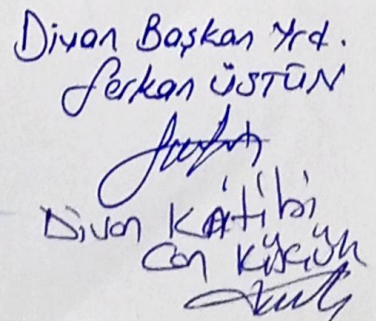 Divan Başkan Yrd.
Serkan ÜSTÜN
Divan Kâtibi
Can